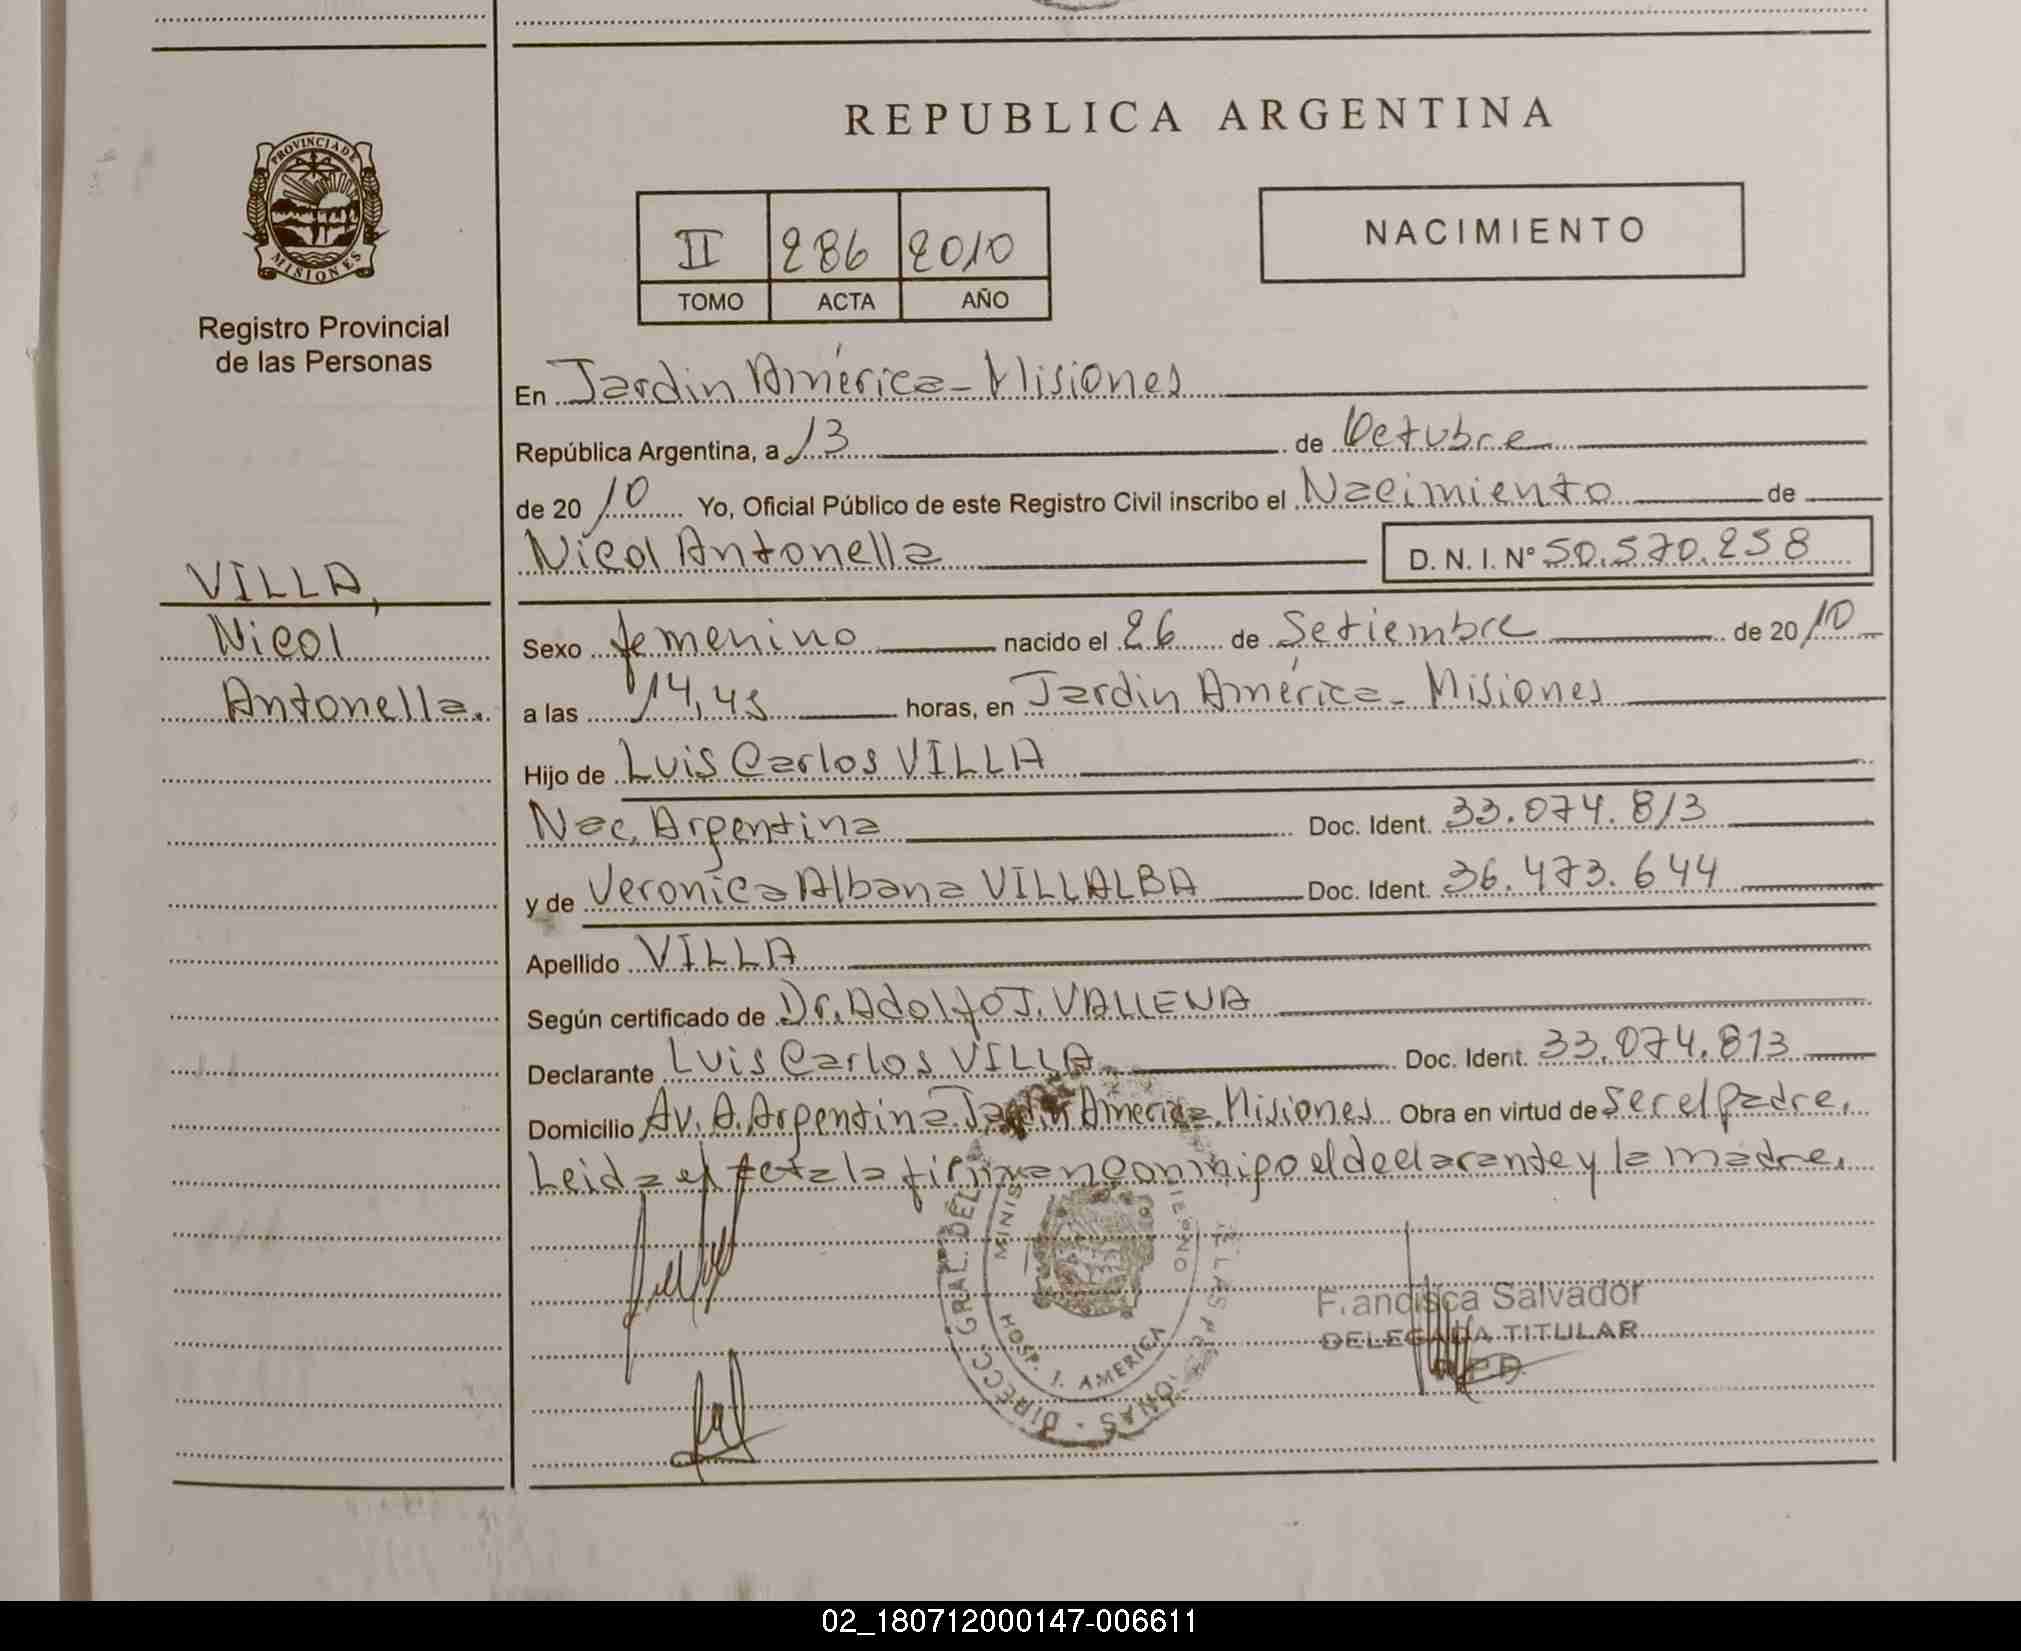 REPUBLICA ARGENTINA
PROVINCIA DE
MISIONES
Registro Provincial
de las Personas
II 286 2010
TOMO ACTA AÑO
NACIMIENTO
En Jardin América - Misiones
República Argentina, a 13 de Octubre
de 2010 Yo, Oficial Público de este Registro Civil inscribo el Nacimiento de
Nicol Antonella D. N. I. N° 50.570.258
VILLA,
Nicol
Antonella.
Sexo femenino nacido el 26 de Setiembre de 2010
a las 14,45 horas, en Jardin América - Misiones
Hijo de Luis Carlos VILLA
Nac. Argentina Doc. Ident. 33.074.813
y de Veronica Albana VILLALBA Doc. Ident. 36.473.644
Apellido VILLA
Según certificado de Dr. Adolfo J. VALLENA
Declarante Luis Carlos VILLA Doc. Ident. 33.074.813
Domicilio Av. A. Argentina Jardin America. Misiones Obra en virtud de ser el padre.
Leida el acta la firman conmigo el declarante y la madre.
DIRECC. GRAL. DEL
HOSP. J. AMERICA
Francisca Salvador
DELEGADA TITULAR
R.P.P.
02_180712000147-006611